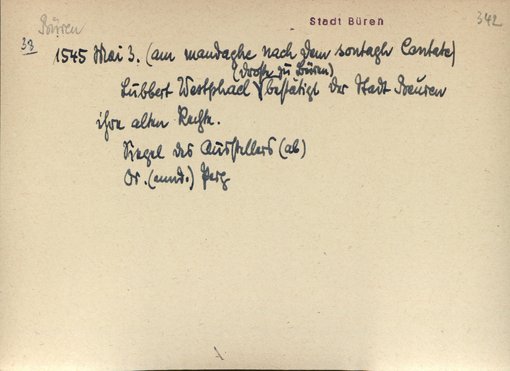 Büren
Stadt Büren
342
33
1545 Mai 3. (am mandaghe nach dem sontagh Cantate)
(Droste zu Büren)
Lubbert Westphael bestätigt der Stadt Beuren
ihre alten Rechte.
Siegel des Ausstellers (ab)
Or. (mnd.) Perg